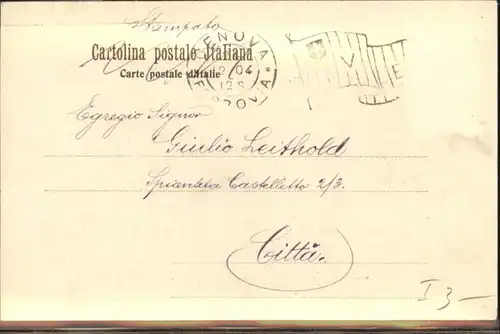 Stampato
Cartolina postale Italiana
Carte postale d'Italie
GENOVA
04
12 S
FERROVIA
V E
Egregio Signor
Giulio Leithold
Spianata Castelletto 2/3.
Città.
I 3-